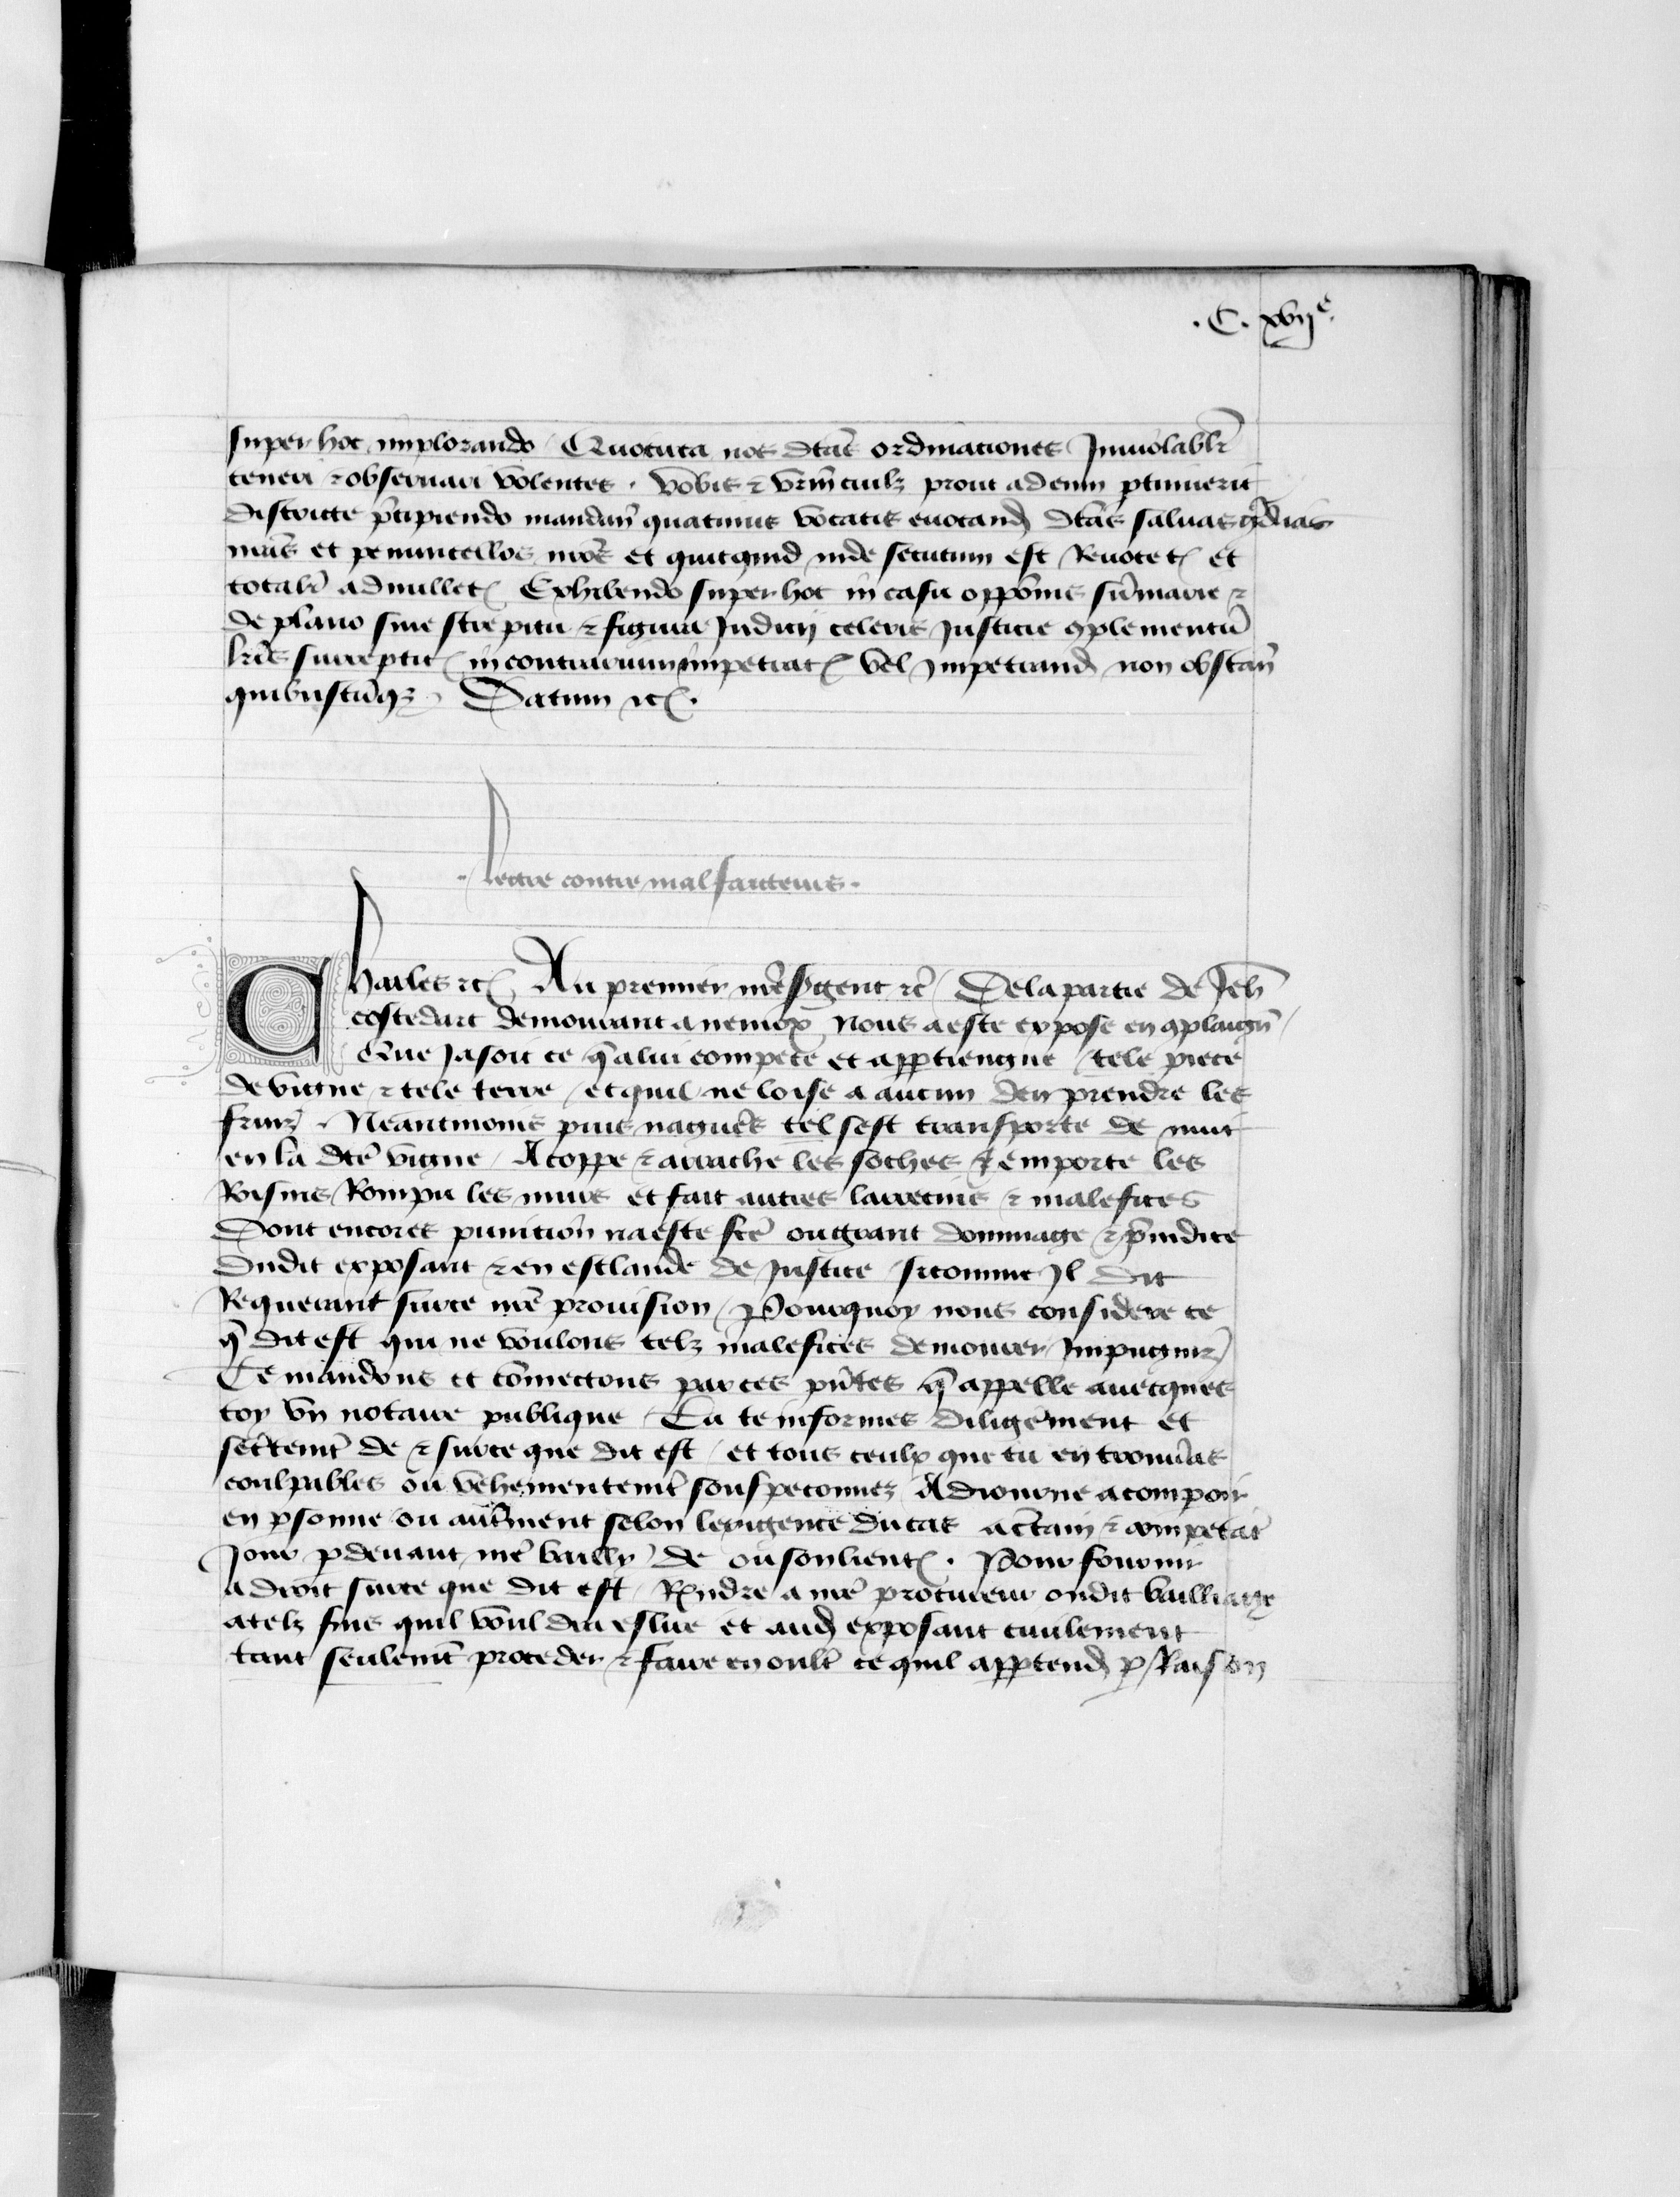 .C. xvij e
super hoc implorando Quocirca nos dtãs ordinaciones Inuiolablr̃
teneri & obseruari volentes . vobis & vr̃m cuilz prout ad eum ptinuerit
districte p̃cipiendo mandam̃ quatinus vocatis euocand dtãs saluas gardias
nr̃as et penuncellos nr̃os et quicquid inde secutum est Reuocet et
totalr̃ adnullet Exhibendo super hoc in casu opp̃onis sum̃arie &
de plano sine strepitu & figura Iudicij celeris Iusticie 9plementũ
lr̃is surreptic in contrarium impetrat vel Impetrand non obstan̄
quibuscũqz Datum &c .
. Lectre contre malfaicteurs .
Charles &c Au premier nr̃e s̃gent &c̃ De la partie de Jeh̃
costedart demourant a nemox Nous a este expose en 9plaign̄
Que Jasoit ce q̃ a lui compete et apptiengne tele piece
de vigne & tele terre et quil ne loise a aucun den prendre les
fruiz . Neantmoins puis nagueres tel sest transporte de nuit
en la dtẽ vigne A coppe & arrache les soches & emporte les
Roisins Rompu les murs et fait autres larrecins & malefices
Dont encores punicion na este fcẽ ou grant dommage & p̃iudice
dudit exposant & en esclande de Justice sicomme Jl dit
Requerant sur ce nr̃e prouision Pourquoy nous considere ce
q̃ dit est qui ne voulons telz malefices demourer Impugniz
Te mandons et com̃ectons par ces pñtes q̃ appelle auecques
toy vn notaire publique Tu te informes diligẽment et
sec̃temt̃ de & sur ce que dit est et tous ceulx que tu en trouuas̃
coulpables ou vehementemt̃ souspeconnez Adiourne a comparoir
en psonne ou aut̃ment selon lexigence du cas a c̃tain & competat̃
Jour p deuant nr̃e bailly de ou son lieut . Pour fournir
a droit sur ce que dit est Rendre a nr̃e procureur oudit bailliage
a telz fins quil vouldra eslire et aud exposant ciuilement
tant seulemt̃ proceder & faire en oult̃ ce quil apptend p Raison